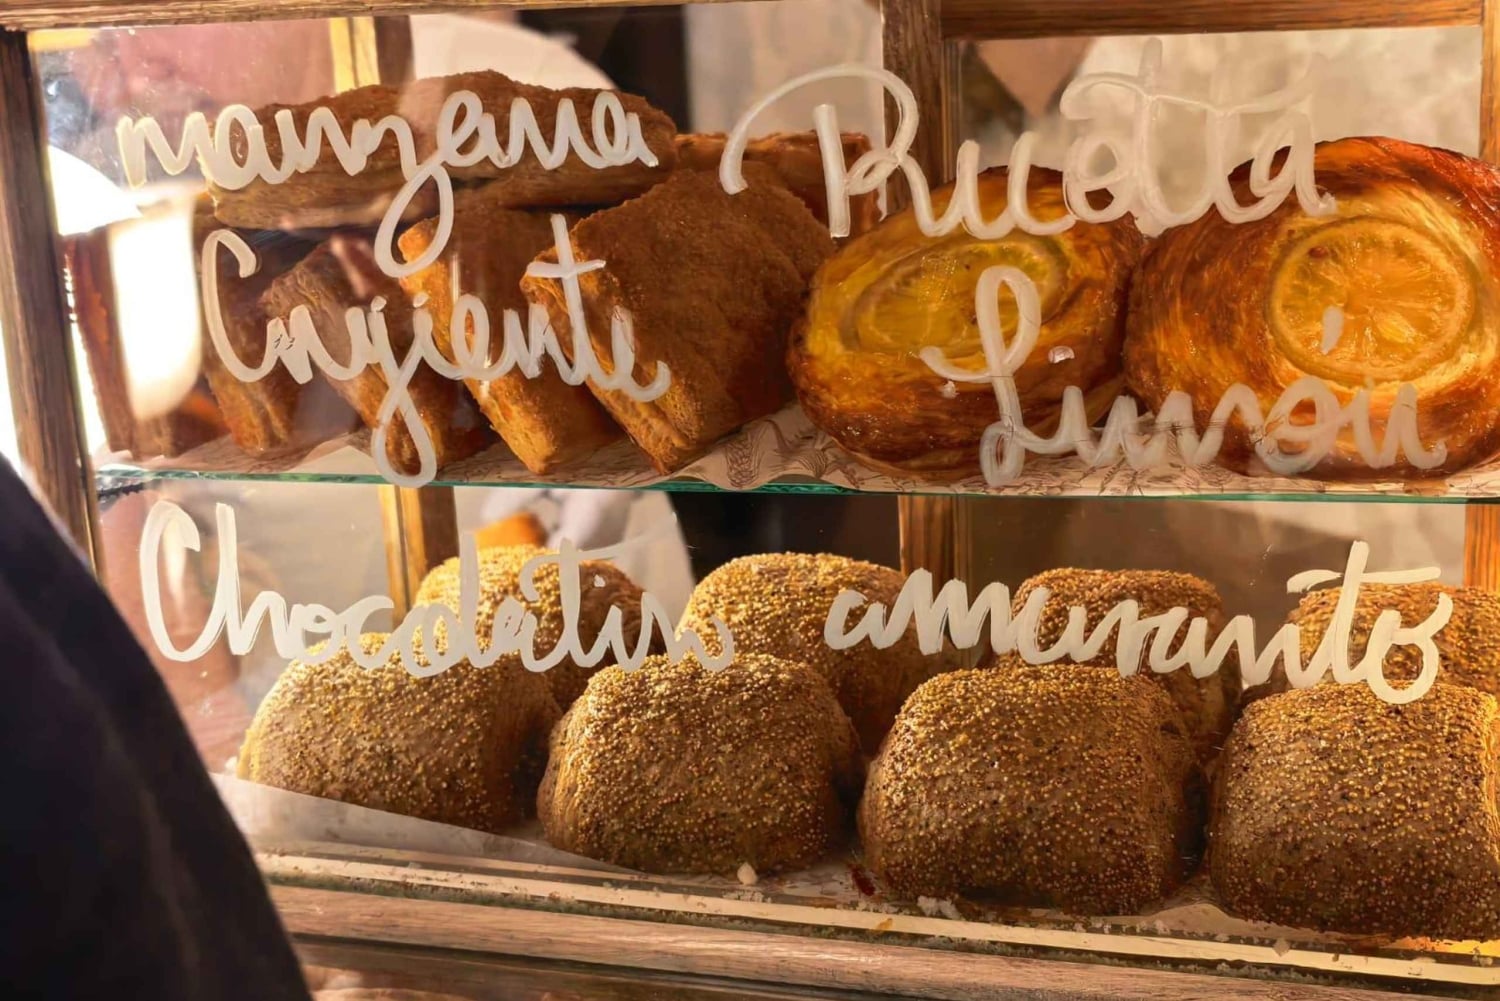 manzana
Crujiente
Ricotta
Limón
Chocolatin amaranto